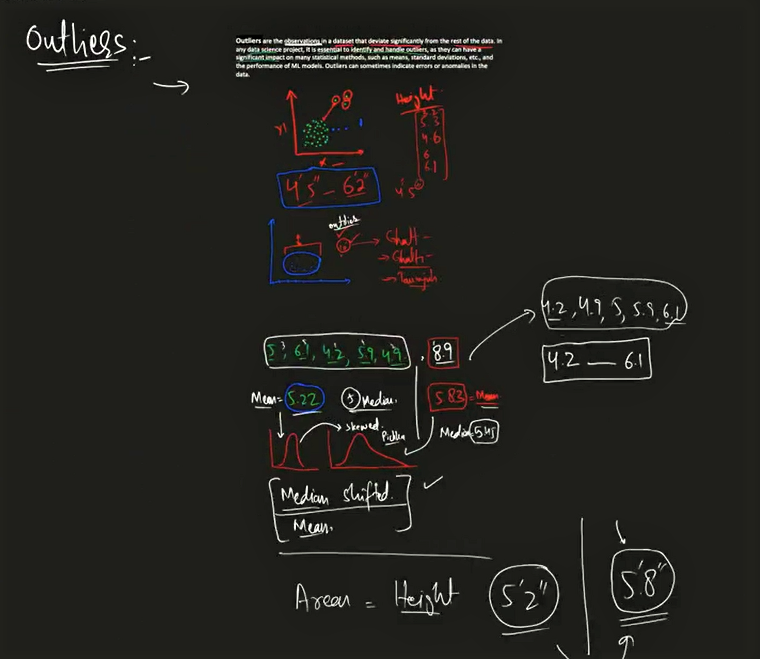 Outliers:-
Outliers are the observations in a dataset that deviate significantly from the rest of the data. In
any data science project, it is essential to identify and handle outliers, as they can have a
significant impact on many statistical methods, such as means, standard deviations, etc., and
the performance of ML models. Outliers can sometimes indicate errors or anomalies in the
data.
Height
4.6
6
6.1
4'5"
4'5" - 6'2"
outlier
5, 6.1, 4.2, 5.9, 4.9, 8.9
4.2, 4.9, 5, 5.9, 6.1
4.2 — 6.1
Mean = 5.22
5 Median.
5.83 = Mean
Median 5.45
skewed.
Median shifted.
Mean.
= Height
5'2"
5'8"